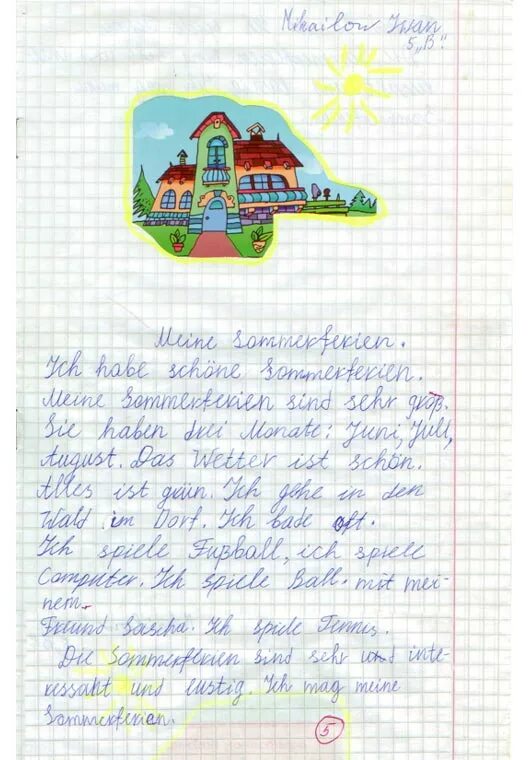 Mikailow Iwan
5 „B".
Meine Sommerferien.
Ich habe schöne Sommerferien.
Meine Sommerferien sind sehr groß.
Sie haben drei Monate: Juni, Juli,
August. Das Wetter ist schön.
Alles ist grün. Ich gehe in den
Wald im Dorf. Ich bade oft.
Ich spiele Fußball, ich spiele
Computer. Ich spiele Ball. mit mei-
nem
Freund Sascha. Ich spiele Tennis.
Die Sommerferien sind sehr und inte-
ressant und lustig. Ich mag meine
Sommerferien.
5